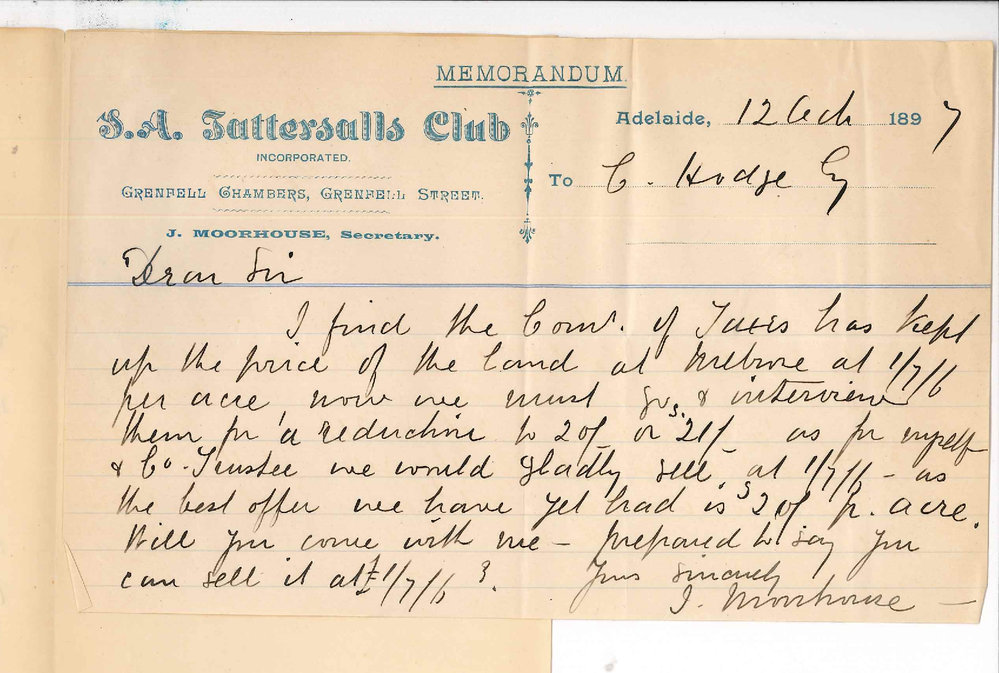 MEMORANDUM.
S.A. Tattersalls Club
INCORPORATED.
GRENFELL CHAMBERS, GRENFELL STREET.
J. MOORHOUSE, Secretary.
Adelaide, 12 Oct 1897
To C. Hodge Esq
Dear Sir
I find the Comr. of Taxes has kept
up the price of the land at Melrose at 1/7/6
per acre, now we must go & interview
them for a reduction to 20/- or 21/- as for myself
& Co-Trustee we would gladly sell at 1/7/6 - as
the best offer we have yet had is 20/- p. acre.
Will you come with me - prepared to say you
can sell it at £1/7/6 ?
Yours sincerely
J. Moorhouse -